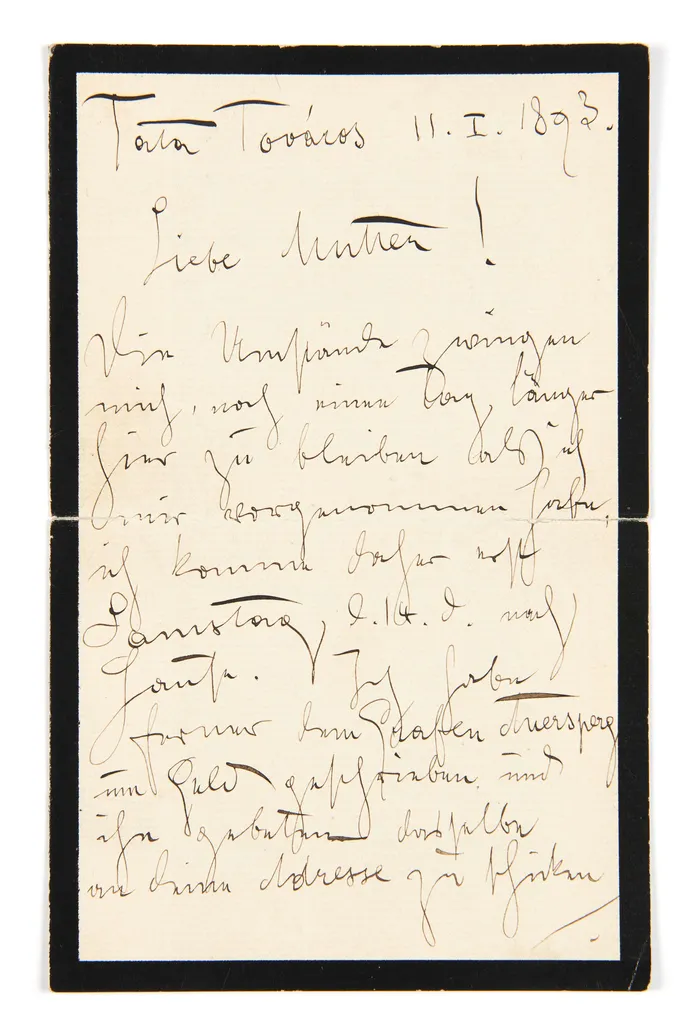 Tata Továros 11. I. 1893.
Liebe Mutter!
Die Umstände zwingen
mich, noch einen Tag länger
hier zu bleiben als ich
mir vorgenommen habe,
ich komme daher erst
Samstag, d. 14. d. nach
Hause. Ich habe
ferner dem Grafen Auersperg
um Geld geschrieben und
ihn gebeten dasselbe
an deine Adresse zu schicken